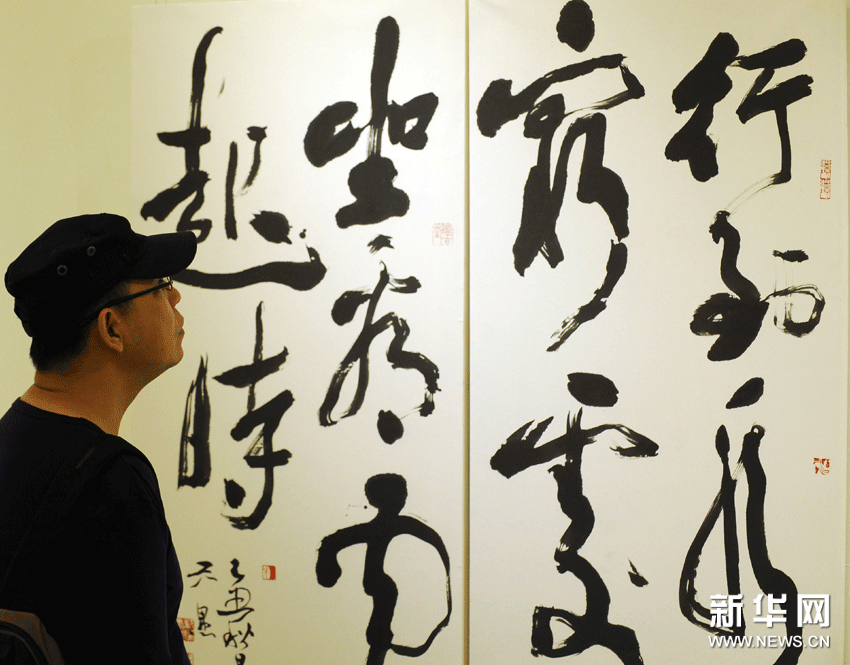 行到水
窮處
坐看雲
起時
新华网
WWW.NEWS.CN